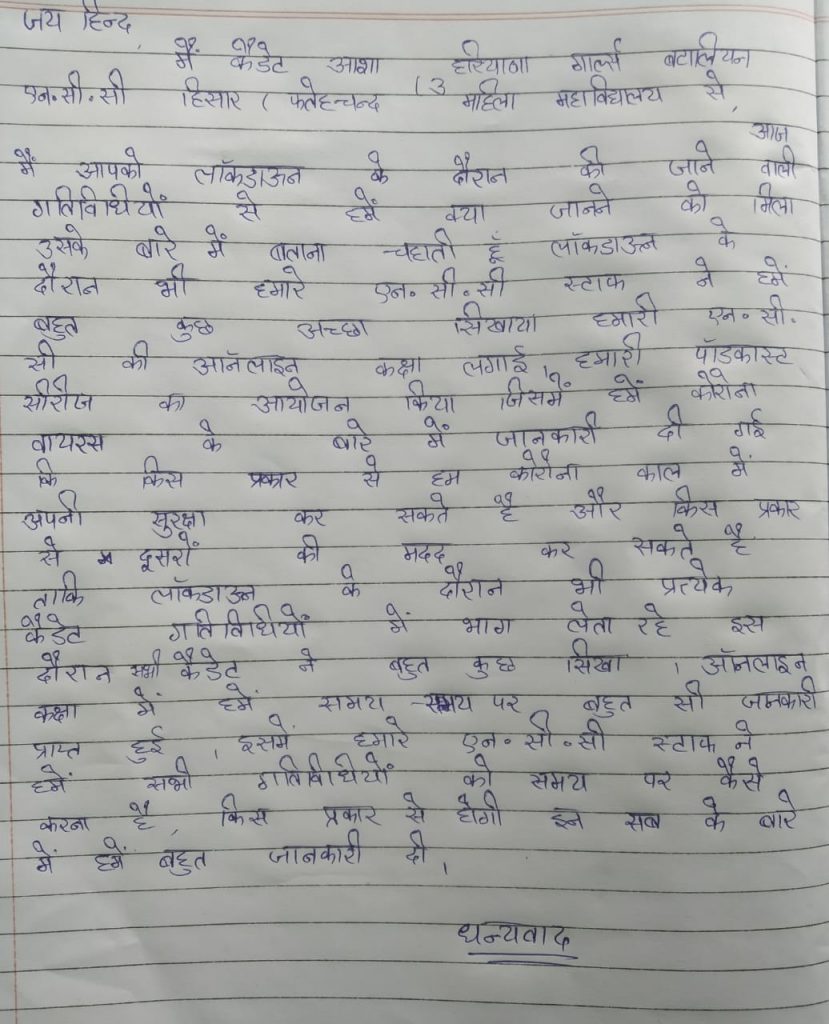 जय हिन्द,
मैं कैडेट आशा हरियाणा गार्ल्स बटालियन
एन.सी.सी हिसार ( फतेहचन्द महिला महाविद्यालय से,
आज
मैं आपको लॉकडाऊन के दौरान की जाने वाली
गतिविधियों से हमें क्या जानने को मिला
उसके बारे में बताना चहाती हूँ लॉकडाऊन के
दौरान भी हमारे एन.सी.सी स्टाक ने हमें
बहुत कुछ अच्छा सिखाया हमारी एन.सी.
सी की ऑनलाइन कक्षा लगाई, हमारी पॉडकास्ट
सीरीज का आयोजन किया जिसमें हमें कोरोना
वायरस के बारे में जानकारी दी गई
कि किस प्रकार से हम कोरोना काल में
अपनी सुरक्षा कर सकते है और किस प्रकार
से दूसरों की मदद कर सकते है
ताकि लॉकडाऊन के दौरान भी प्रत्येक
कैडेट गतिविधियों में भाग लेता रहे इस
दौरान सभी कैडेट ने बहुत कुछ सिखा । ऑनलाइन
कक्षा में हमें समय -समय पर बहुत सी जानकारी
प्राप्त हुई, इसमें हमारे एन.सी.सी स्टाक ने
हमें सभी गतिविधियों को समय पर कैसे
करना है, किस प्रकार से होगी इन सब के बारे
में हमें बहुत जानकारी दी,
धन्यवाद